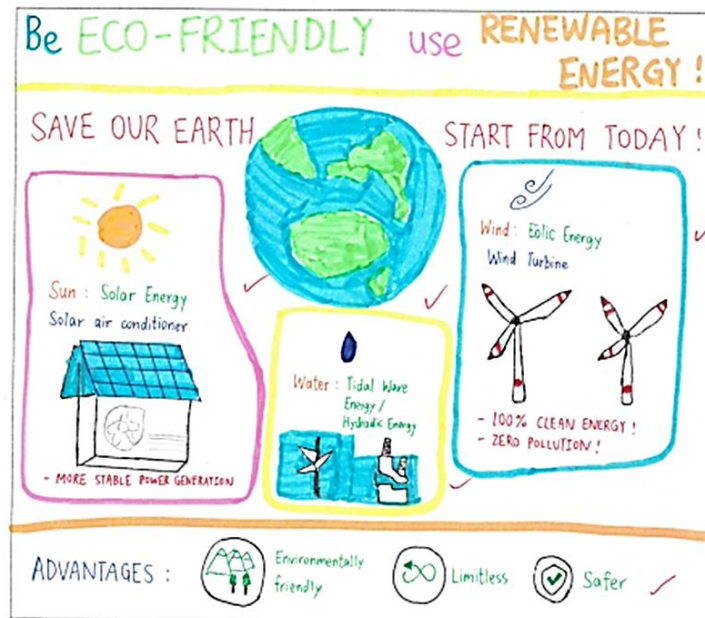 Be ECO-FRIENDLY use RENEWABLE
ENERGY !
SAVE OUR EARTH
START FROM TODAY !
Sun : Solar Energy
Solar air conditioner
- MORE STABLE POWER GENERATION
Water : Tidal Wave
Energy /
Hydraulic Energy
Wind : Eolic Energy
Wind Turbine
- 100% CLEAN ENERGY !
- ZERO POLLUTION !
ADVANTAGES :
Environmentally
friendly
Limitless
Safer